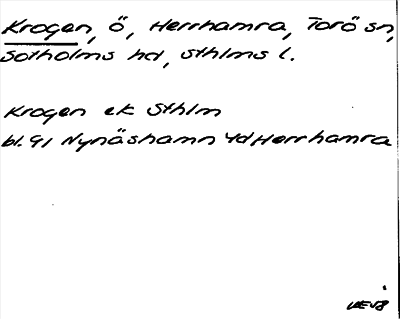 Krogen, Ö, Herrhamra, Torö sn,
Sotholms hd, Sthlms l.
Krogen ek Sthlm
bl. 91 Nynäshamn 4d Herrhamra